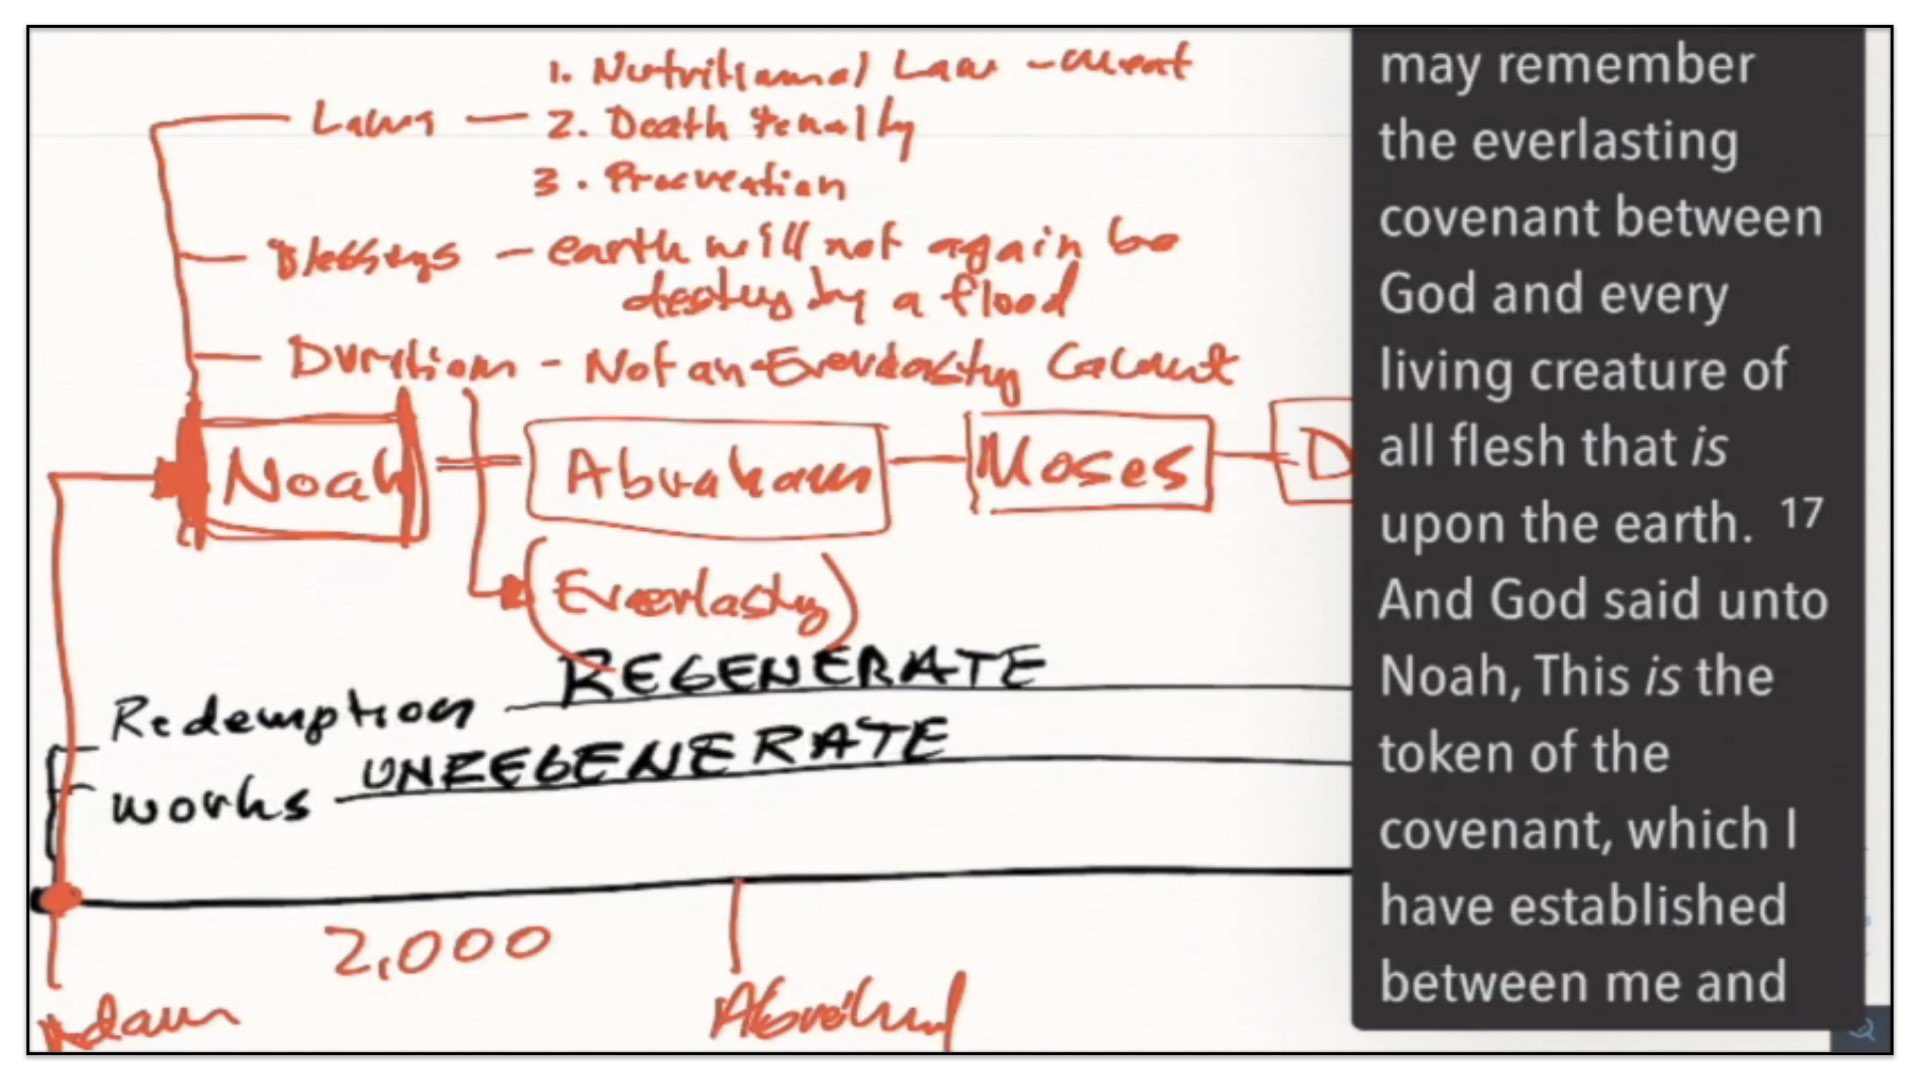 1. Nutritiamal Law - meat
Laws - 2. Death Penalty
3. Procreation
Blessings - earth will not again be
destroy by a flood
Duration - Not an Everlasting Covenant
Noah
Abraham
Moses
D
(Everlasting)
REGENERATE
Redemption
UNREGENERATE
works
2,000
Adam
Abraham
may remember
the everlasting
covenant between
God and every
living creature of
all flesh that is
upon the earth. 17
And God said unto
Noah, This is the
token of the
covenant, which I
have established
between me and